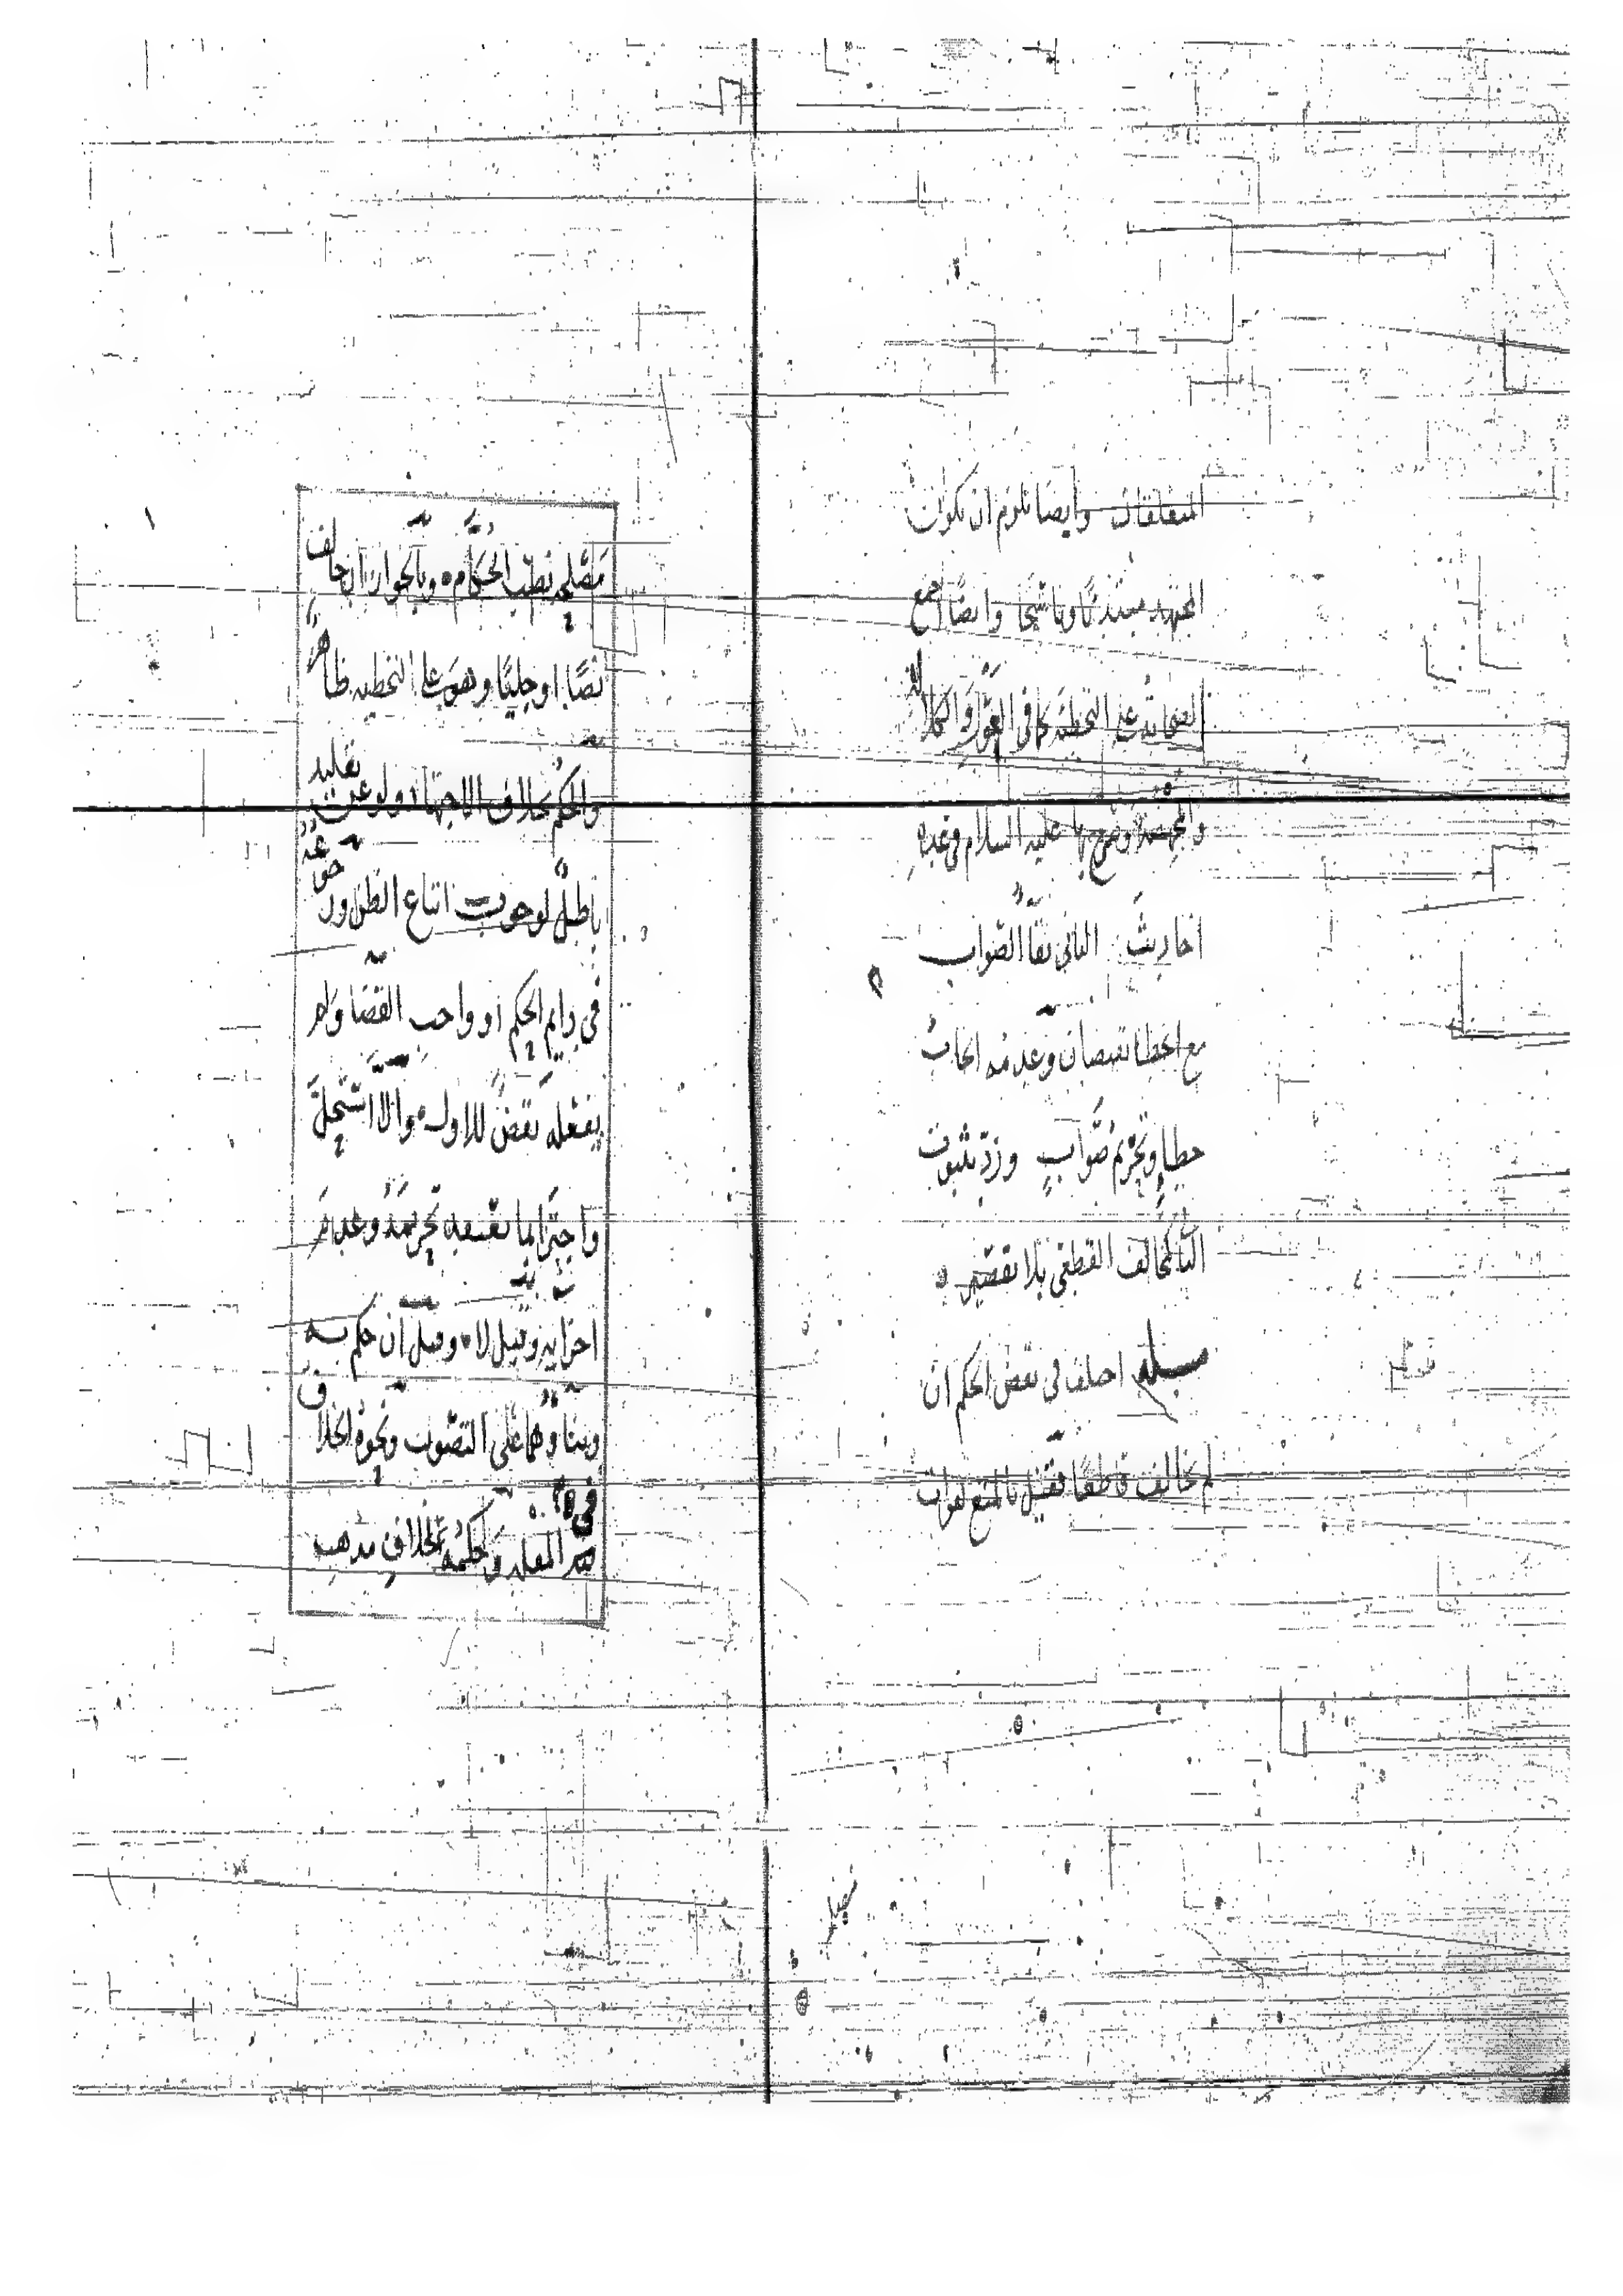 المتعلقان وأيضا يلزم ان يكون
المجتهد مبتدئا وناسخا وايضا اجمع
الصحابة على التخطية كما في العول والكلالة
والمجهضة وصرح بها عليه السلام في عدة
احاديث الثاني بقا الصواب
مع الخطا نقيضان وعدمه ايجاب
خطا وتحريم صواب ورد بثبوت
المخالف القطعي بلا تقصير
مسله اختلف في نقض الحكم ان
لم يخالف قاطعا فقيل بالمنع لفوات
مصلحه نصب الحكام وبالجواز ان خالف
نصا او جليا وهو على التخطيه ظاهر
والحكم بخلاف الاجتهاد ولو عن تقليد
باطل لوجوب اتباع الظن
في دايم الحكم او واجب القضا ولم
يفعله نقض للاول والا استحل
تحريمه وعدم
اجزايه وقيل لا وقيل ان حكم به
وبناوهما على التصويب ونحوه الخلاف
في المقلد وحكمه بخلاف مذهب